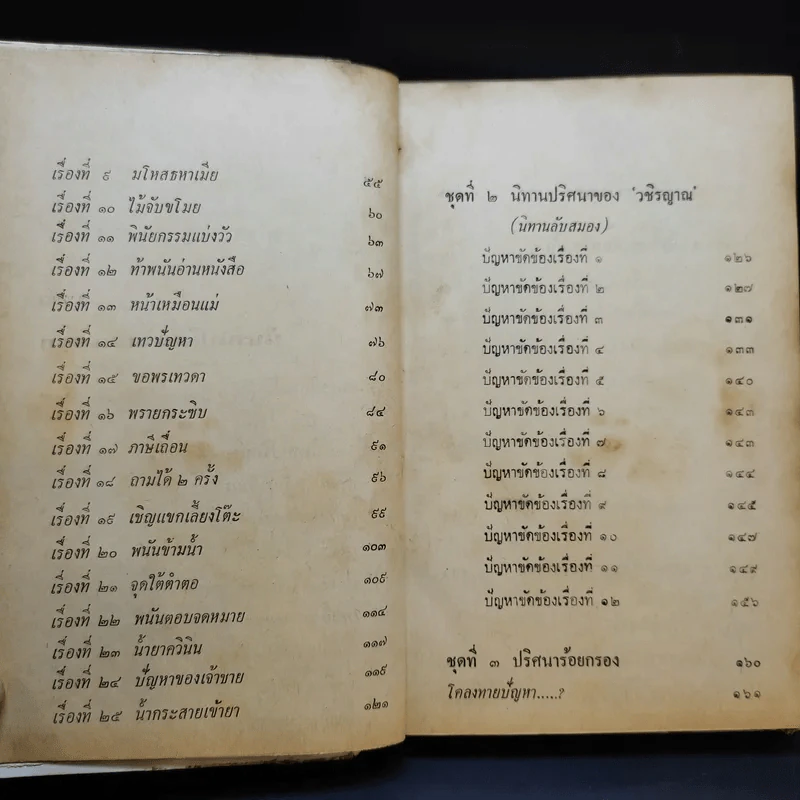 เรื่องที่ ๙ มโหสธหาเมีย ๕๕
เรื่องที่ ๑๐ ไม้จับขโมย ๖๐
เรื่องที่ ๑๑ พินัยกรรมแบ่งวัว ๖๓
เรื่องที่ ๑๒ ท้าพนันอ่านหนังสือ ๖๗
เรื่องที่ ๑๓ หน้าเหมือนแม่ ๗๓
เรื่องที่ ๑๔ เทวปัญหา ๗๖
เรื่องที่ ๑๕ ขอพรเทวดา ๘๐
เรื่องที่ ๑๖ พรายกระซิบ ๘๔
เรื่องที่ ๑๗ ภาษีเถื่อน ๙๑
เรื่องที่ ๑๘ ถามได้ ๒ ครั้ง ๙๖
เรื่องที่ ๑๙ เชิญแขกเลี้ยงโต๊ะ ๙๙
เรื่องที่ ๒๐ พนันข้ามน้ำ ๑๐๓
เรื่องที่ ๒๑ จุดใต้ตำตอ ๑๐๙
เรื่องที่ ๒๒ พนันตอบจดหมาย ๑๑๔
เรื่องที่ ๒๓ น้ำยาควินิน ๑๑๗
เรื่องที่ ๒๔ ปัญหาของเจ้าขาย ๑๑๙
เรื่องที่ ๒๕ น้ำกระสายเข้ายา ๑๒๑
ชุดที่ ๒ นิทานปริศนาของ 'วชิรญาณ'
(นิทานลับสมอง)
ปัญหาขัดข้องเรื่องที่ ๑ ๑๒๖
ปัญหาขัดข้องเรื่องที่ ๒ ๑๒๗
ปัญหาขัดข้องเรื่องที่ ๓ ๑๓๑
ปัญหาขัดข้องเรื่องที่ ๔ ๑๓๓
ปัญหาขัดข้องเรื่องที่ ๕ ๑๔๐
ปัญหาขัดข้องเรื่องที่ ๖ ๑๔๓
ปัญหาขัดข้องเรื่องที่ ๗ ๑๔๓
ปัญหาขัดข้องเรื่องที่ ๘ ๑๔๔
ปัญหาขัดข้องเรื่องที่ ๙ ๑๔๕
ปัญหาขัดข้องเรื่องที่ ๑๐ ๑๔๗
ปัญหาขัดข้องเรื่องที่ ๑๑ ๑๔๙
ปัญหาขัดข้องเรื่องที่ ๑๒ ๑๕๖
ชุดที่ ๓ ปริศนาร้อยกรอง ๑๖๐
โคลงทายปัญหา.....? ๑๖๑